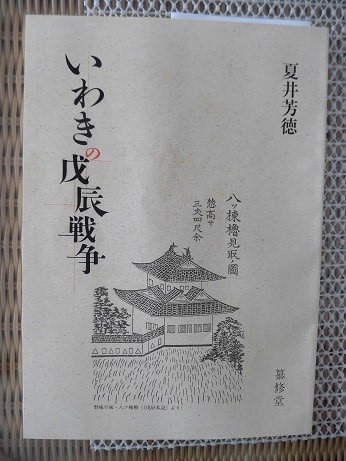 夏井芳徳
いわきの戊辰戦争
八ッ棟櫓見取ノ圖
惣高サ
三丈四尺余
纂修堂